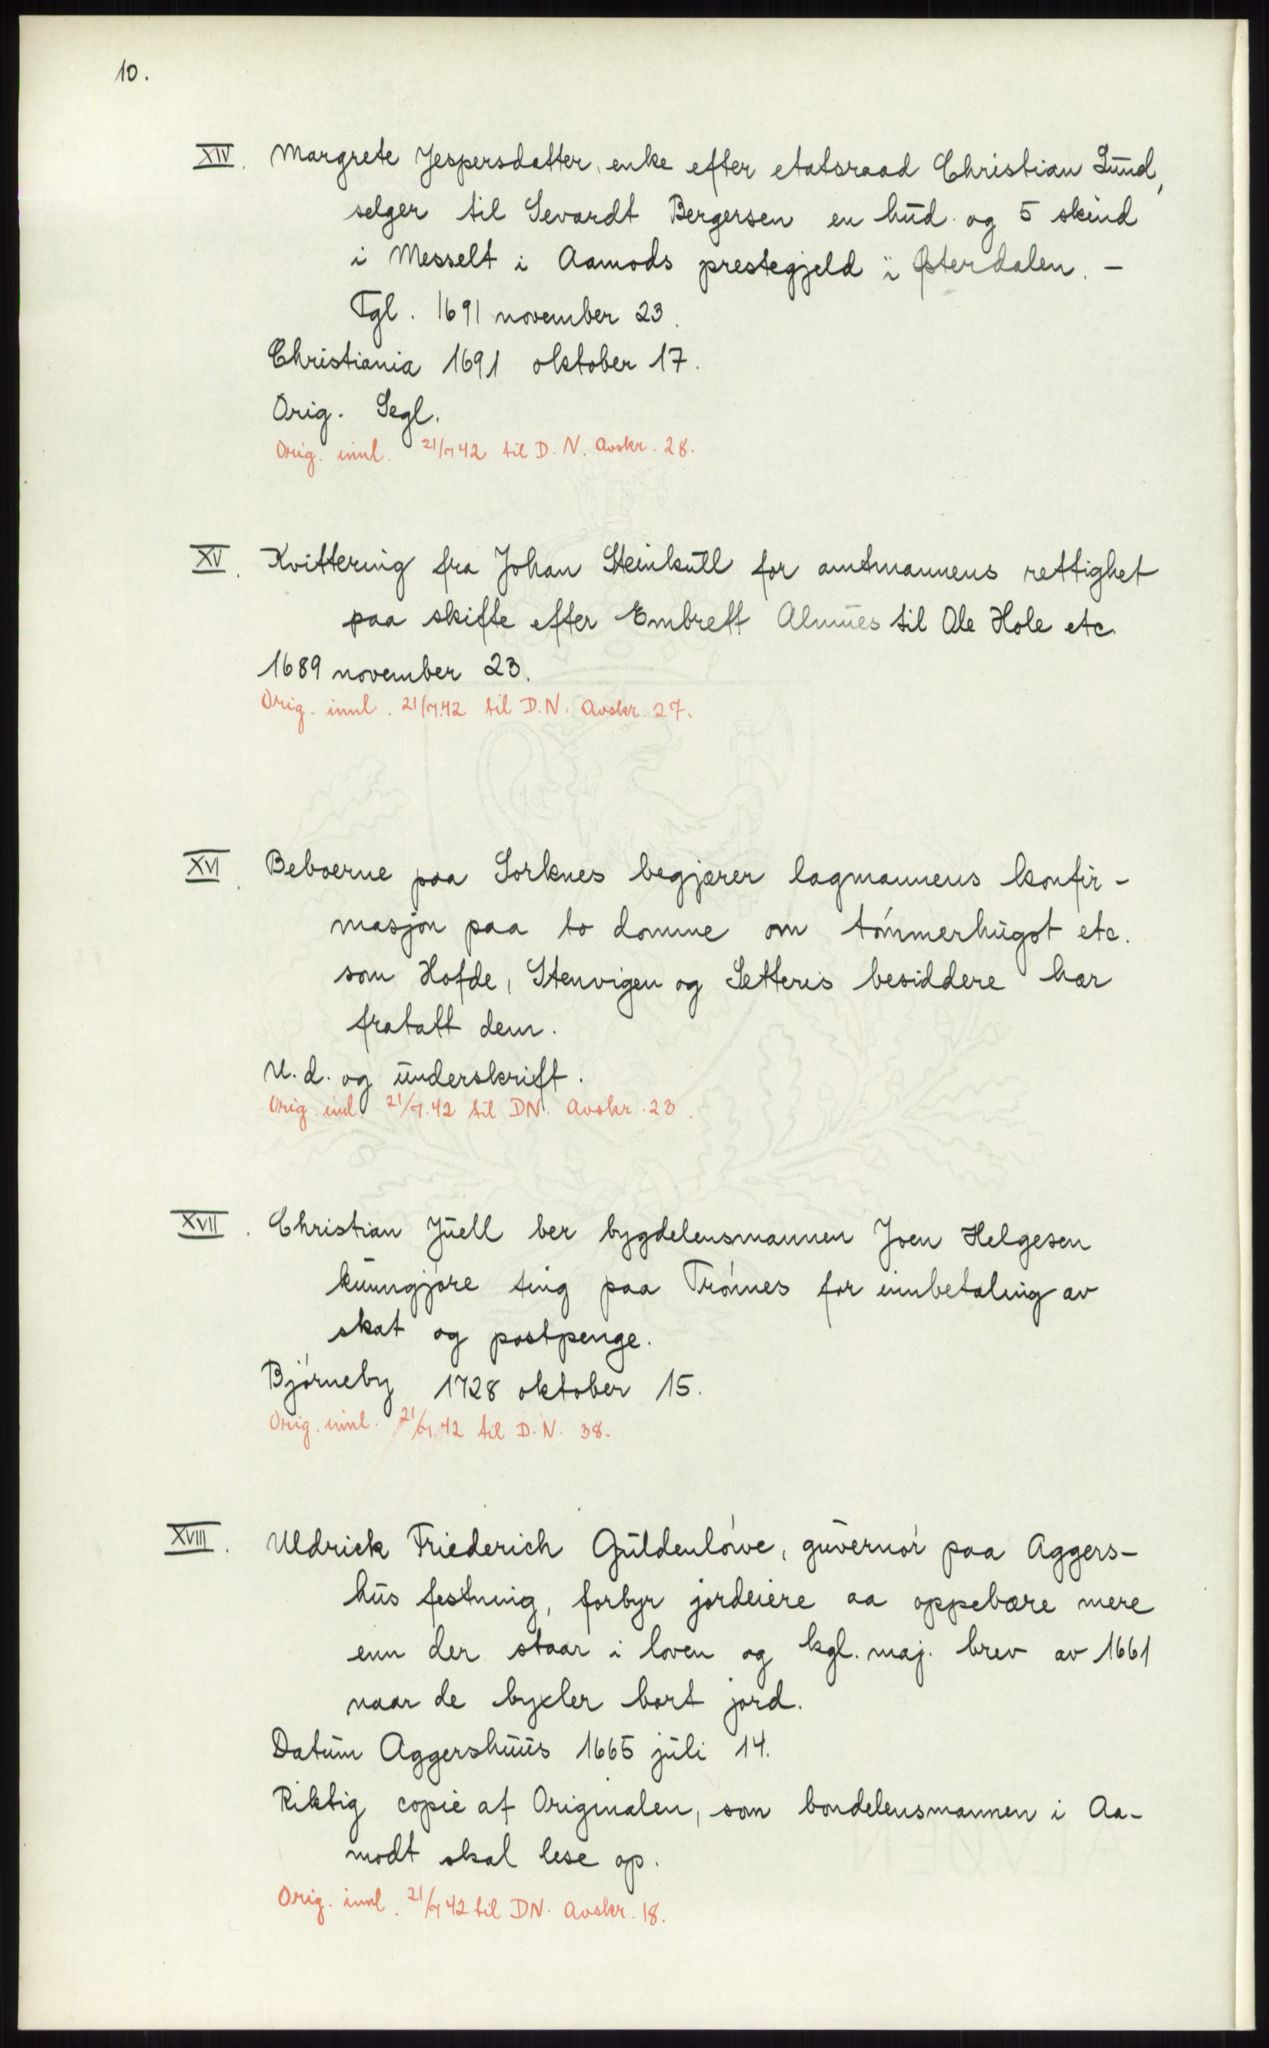 10.
XIV. Margrete Jespersdatter, enke efter etatsraad Christian Lund,
selger til Sevardt Bergersen en hud og 5 skind
i Messelt i Aamods prestegjeld i Østerdalen. -
Tgl. 1691 november 23.
Christiania 1691 oktober 17.
Orig. Segl.
Orig. innl. 21/7 42 til D. N. Avskr. 28.
XV. Kvittering fra Johan Steinkull for amtmannens rettighet
paa skifte efter Embrett Almues til Ole Hole etc.
1689 november 23.
Orig. innl. 21/7.42 til D.N. Avskr. 27.
XVI. Beboerne paa Sorknes begjærer lagmannens konfir-
masjon paa to domme om tømmerhugst etc.
som Hofde, Stenvigen og Setteres besiddere har
fratatt dem.
U. d. og underskrift.
Orig. inl. 21/7.42 til DN. Avskr. 23.
XVII. Christian Juell ber bygdelensmannen Joen Helgesen
kunngjøre ting paa Trønnes for innbetaling av
skat og postpenge.
Bjørneby 1728 oktober 15.
Orig. innl. 21/7.42 til D. N. 38.
XVIII. Uldrick Friederich Guldenløwe, guvernør paa Aggers-
hus festning, forbyr jordeiere aa oppebære mere
enn der staar i loven og kgl. maj. brev av 1661
naar de bygler bort jord.
Datum Aggershuus 1665 juli 14.
Riktig copie af Originalen, som bondelensmannen i Aa-
modt skal lese op.
Orig. innl. 21/7 42 til DN. Avskr. 18.